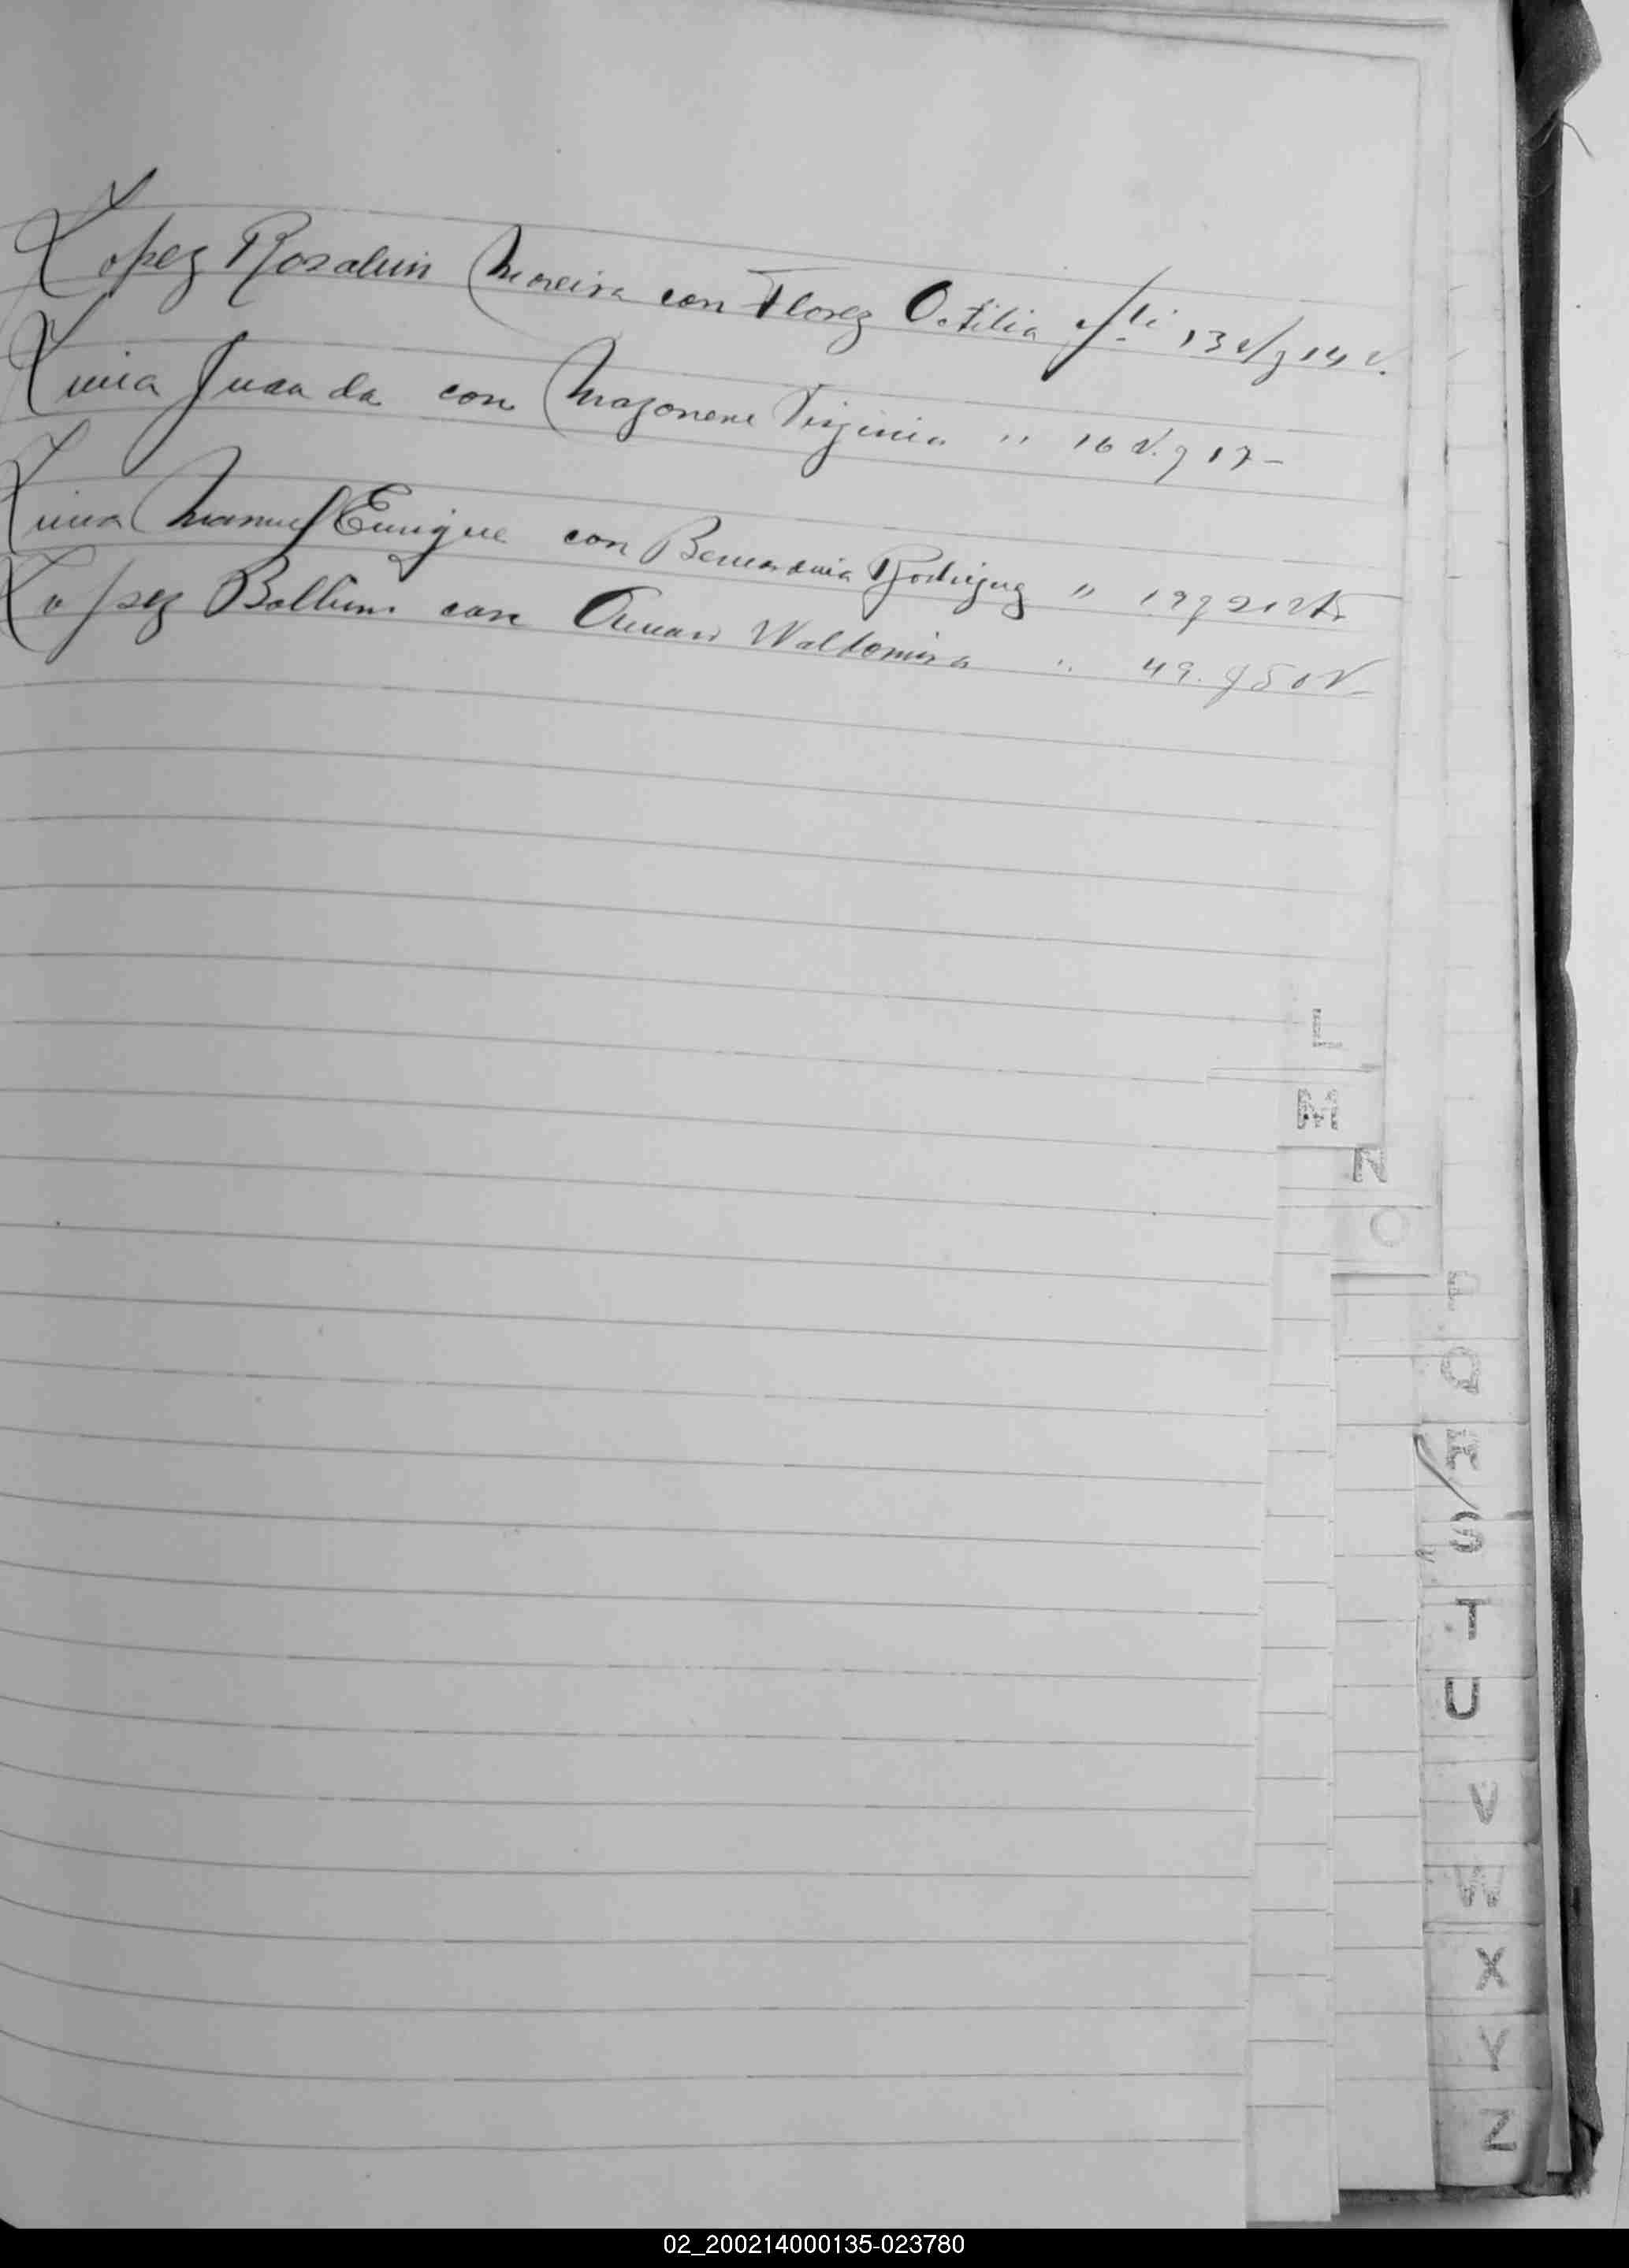 Lopez Rosalvin Moreira con Florez Otilia 13 v/ y 14 v.
Lima Juan da con Virginia " 16 v. y 17 -
Lima Manuel Enrique con Bernardina Rodriguez " 19 y 21 vta
Lopez con Waldomira " 49. y 50 v -
L
M
N
O
P
Q
R
S
T
U
V
W
X
Y
Z
02_200214000135-023780